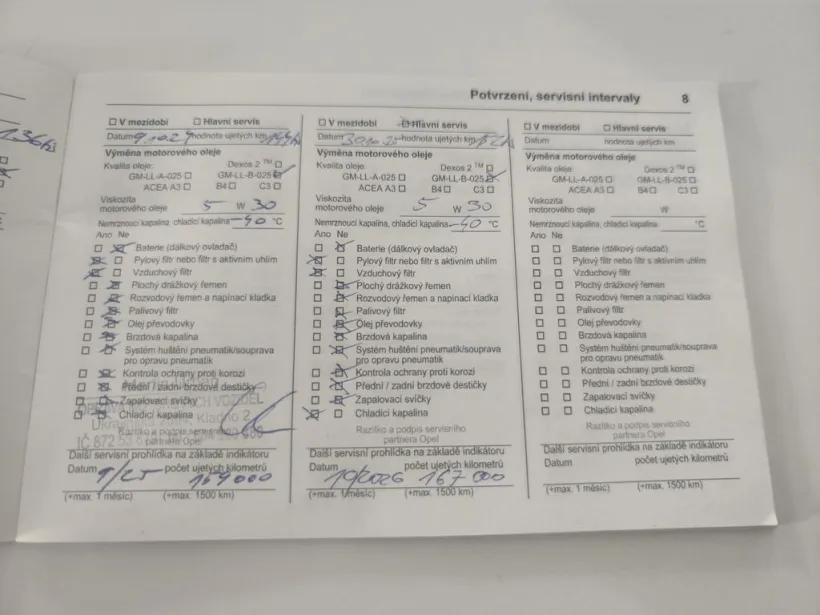 136
Potvrzení, servisní intervaly 8
V mezidobí Hlavní servis
Datum hodnota ujetých km
Výměna motorového oleje
Kvalita oleje: Dexos 2 TM
GM-LL-A-025 GM-LL-B-025
ACEA A3 B4 C3
Viskozita
motorového oleje 5 W 30
Nemrznoucí kapalina, chladicí kapalina -40 °C
Ano Ne
Baterie (dálkový ovladač)
Pylový filtr nebo filtr s aktivním uhlím
Vzduchový filtr
Plochý drážkový řemen
Rozvodový řemen a napínací kladka
Palivový filtr
Olej převodovky
Brzdová kapalina
Systém huštění pneumatik/souprava
pro opravu pneumatik
Kontrola ochrany proti korozi
Přední / zadní brzdové destičky
Zapalovací svíčky
Chladicí kapalina
Razítko a podpis servisního
partnera Opel
Ukrajinská Kladno 2
IČ 872 53
Další servisní prohlídka na základě indikátoru
Datum 9/25 počet ujetých kilometrů
(+max. 1 měsíc) (+max. 1500 km)
V mezidobí Hlavní servis
Datum hodnota ujetých km
Výměna motorového oleje
Kvalita oleje: Dexos 2 TM
GM-LL-A-025 GM-LL-B-025
ACEA A3 B4 C3
Viskozita
motorového oleje 5 W 30
Nemrznoucí kapalina, chladicí kapalina -40 °C
Ano Ne
Baterie (dálkový ovladač)
Pylový filtr nebo filtr s aktivním uhlím
Vzduchový filtr
Plochý drážkový řemen
Rozvodový řemen a napínací kladka
Palivový filtr
Olej převodovky
Brzdová kapalina
Systém huštění pneumatik/souprava
pro opravu pneumatik
Kontrola ochrany proti korozi
Přední / zadní brzdové destičky
Zapalovací svíčky
Chladicí kapalina
Razítko a podpis servisního
partnera Opel
Další servisní prohlídka na základě indikátoru
Datum 10/2026 počet ujetých kilometrů 167 000
(+max. 1 měsíc) (+max. 1500 km)
V mezidobí Hlavní servis
Datum hodnota ujetých km
Výměna motorového oleje
Kvalita oleje: Dexos 2 TM
GM-LL-A-025 GM-LL-B-025
ACEA A3 B4 C3
Viskozita
motorového oleje W
Nemrznoucí kapalina, chladicí kapalina °C
Ano Ne
Baterie (dálkový ovladač)
Pylový filtr nebo filtr s aktivním uhlím
Vzduchový filtr
Plochý drážkový řemen
Rozvodový řemen a napínací kladka
Palivový filtr
Olej převodovky
Brzdová kapalina
Systém huštění pneumatik/souprava
pro opravu pneumatik
Kontrola ochrany proti korozi
Přední / zadní brzdové destičky
Zapalovací svíčky
Chladicí kapalina
Razítko a podpis servisního
partnera Opel
Další servisní prohlídka na základě indikátoru
Datum počet ujetých kilometrů
(+max. 1 měsíc) (+max. 1500 km)